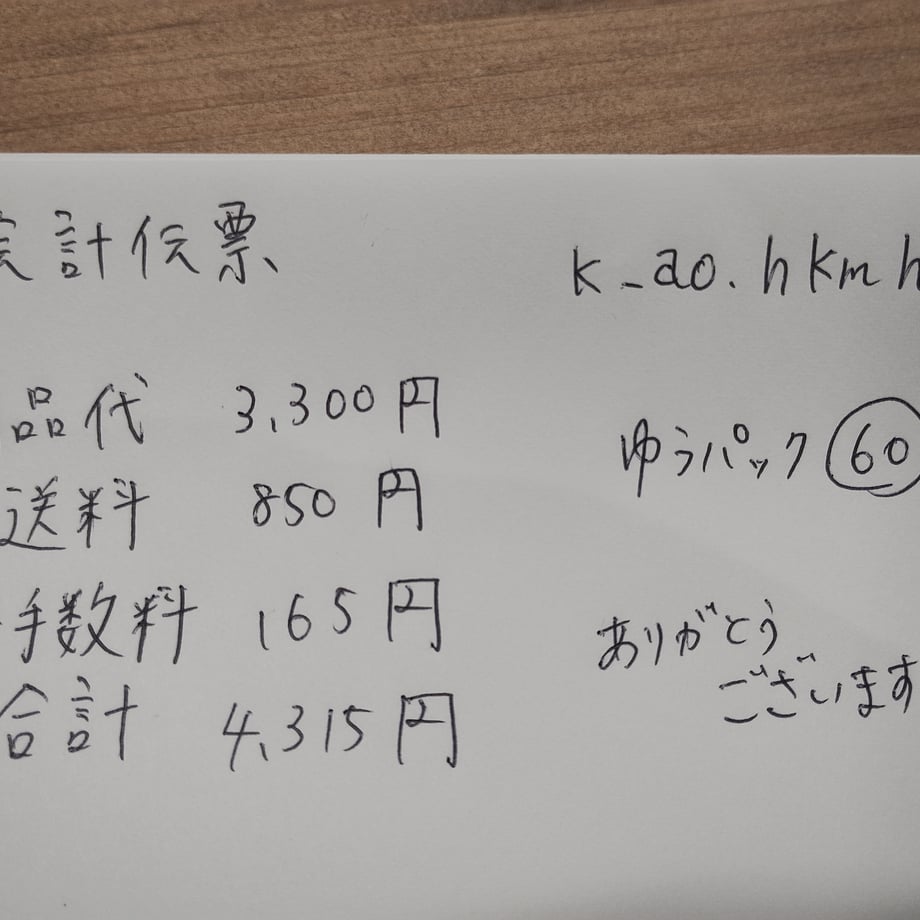 会計伝票
k_ao.hkmh
品代 3,300円
ゆうパック 60
送料 850円
手数料 165円
ありがとう
ございます
合計 4,315円